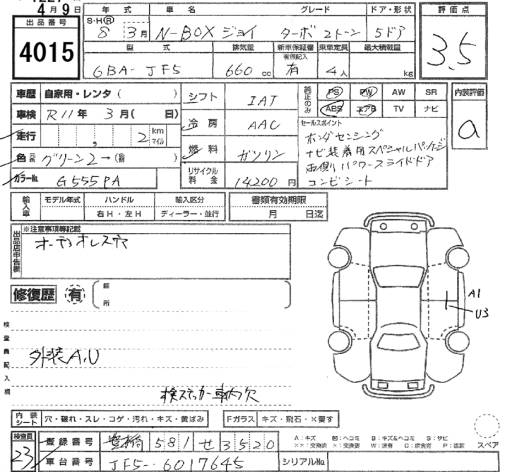 4月9日
年式 車名 グレード ドア・形状 評価点
出品番号 S・H・Ⓡ 8 3月 N-BOX ジョイ ターボ 2トーン 5ドア 3.5
4015
型式 排気量 新車保証書 乗車定員 最大積載量
保証記入
GBA- JF5 660 cc 有 4人 kg
車歴 自家用・レンタ( ) シフト IAT PS PW AW SR 内装評価
ABS エアB TV ナビ
車検 R11年 3月( 日) 冷房 AAC a
走行 , 2 km マイル セールスポイント
燃料 ガソリン ホンダセンシング
色 グリーン2→(
ナビ装着用スペシャルパッケージ
カラーNo. G555PA リサイクル料金 14200円 両側パワースライドドア
コンビシート
輸入車 モデル年式 ハンドル 輸入区分 書類有効期限
右H・左H ディーラー・並行 月 日迄
出品店申告欄 ※注意事項等記載
オーディオレスです
修復歴 有 箇所
A1
U3
検査員記入欄
外装A,U
検ステッカー車内欠
内装シート 穴・破れ・スレ・コゲ・汚れ・キズ・黄ばみ Fガラス キズ・飛石・X要す
検査員 23 登録番号 豊橋 581 せ 3520
A:キズ
スペア
車台番号 JF5-6017645 シリアルNo.